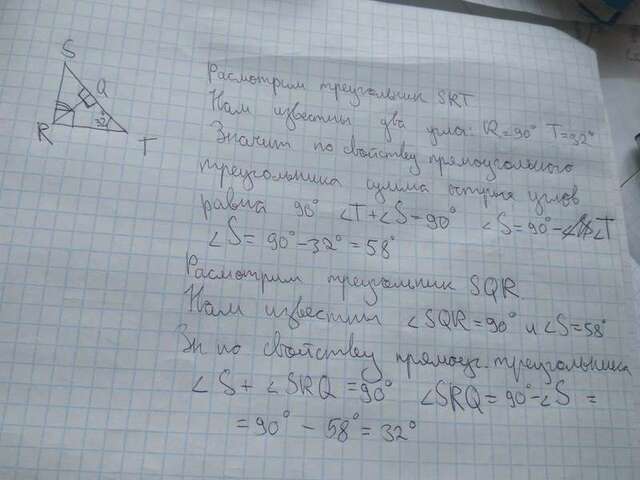 S
Q
R
32°
T
Расмотрим треугольник SRT
Нам известны два угла: R=90° T=32°
Значит по свойству прямоугольного
треугольника сумма острых углов
равна 90° ∠T+∠S=90° ∠S=90°-∠T
∠S=90°-32°=58°
Расмотрим треугольник SQR.
Нам известны ∠SQR=90° и ∠S=58°
Зн по свойству прямоуг. треугольника
∠S+∠SRQ=90° ∠SRQ=90°-∠S=
=90°-58°=32°